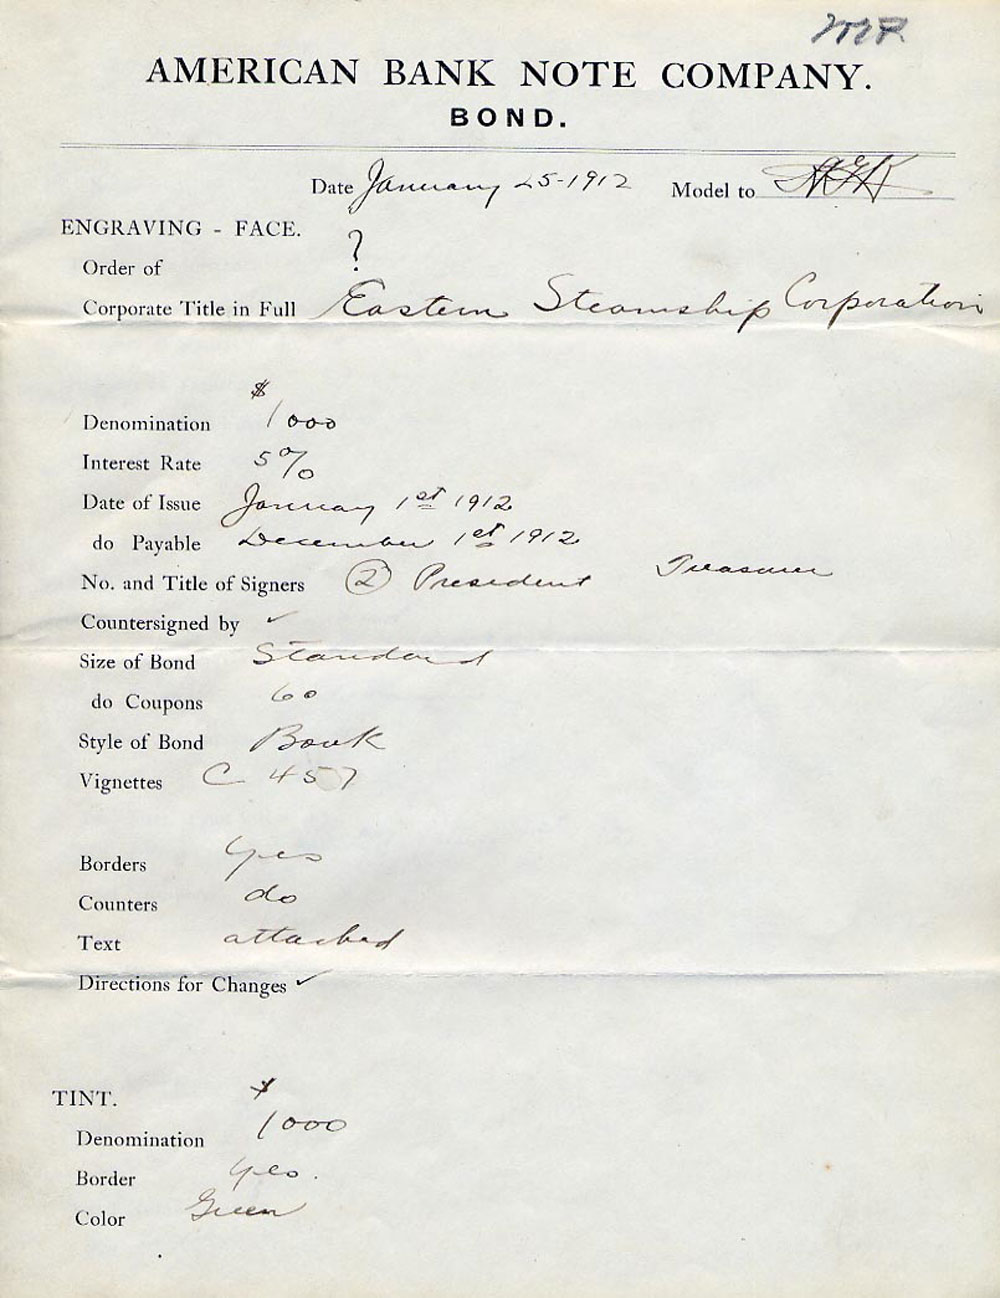 AMERICAN BANK NOTE COMPANY.
BOND.
Date January 25-1912 Model to
ENGRAVING - FACE.
Order of ?
Corporate Title in Full Eastern Steamship Corporation
$
Denomination 1000
Interest Rate 5%
Date of Issue January 1st 1912
do Payable December 1st 1912
No. and Title of Signers (2) President Treasurer
Countersigned by ✓
Size of Bond Standard
do Coupons 60
Style of Bond Book
Vignettes C 457
Borders Yes
Counters do
Text attached
Directions for Changes ✓
TINT. $
Denomination 1000
Border Yes.
Color Green